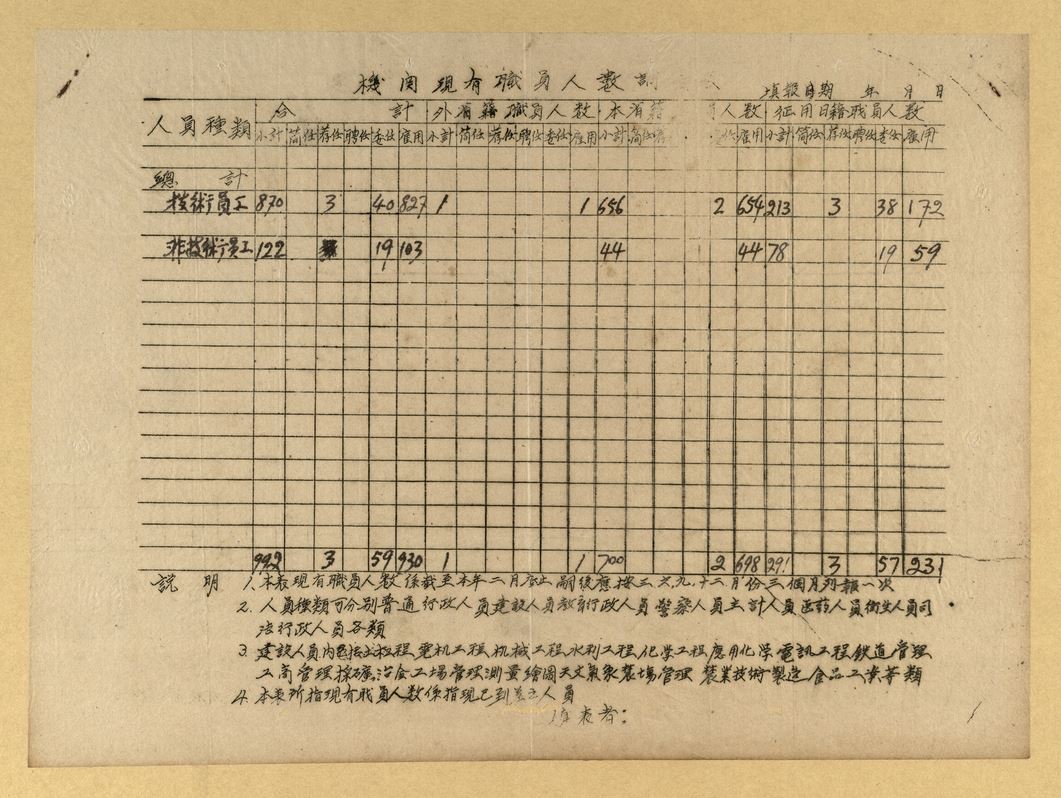 機関現有職員人数
填報日期 年 月 日
人員種類 合計 外省籍職員人数 本省籍 人数 征用日籍職員人数
小計 简任 荐任 聘任 委任 雇用 小計 简任 荐任 聘任 委任 雇用 小計 简任 雇用 小計 简任 荐任 聘任 委任 雇用
總計
技術員工 870 3 40 827 1 1 656 2 654 213 3 38 172
非技術員工 122 19 103 44 44 78 19 59
992 3 59 930 1 1 700 2 698 291 3 57 231
説明 1. 本表現有職員人数係截至本年二月底止嗣後應按三.六.九.十二月份三個月列報一次
2. 人員種類可分别普通行政人員建設人員教育行政人員警察人員主計人員医药人員衛生人員司
法行政人員各類
3. 建設人員内包括土木工程.電机工程.机械工程.水利工程.化学工程.應用化学.電訊工程.鉄道管理.
工商管理採礦冶金工場管理測量繪圖天文氣象農場管理 農業技術製造食品工業等類
4. 本表所指現有职員人数係指現已到差之人員
填表者：